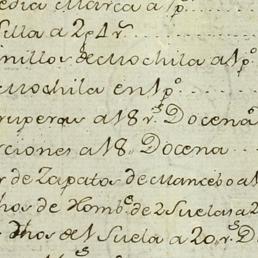 edia Marca a 1 p.º
silla a 2 p.s 4 r.s
inillos de mochila a 1 p.º
mochila en 1 p.º
ruperas a 18 r.s Docena
rciones a 18 Docena
r de Zapatos de Mancebo a 1
hos de Homb.e de 2 Suelas a 2
dhos de 1 Suela a 20 r.s D